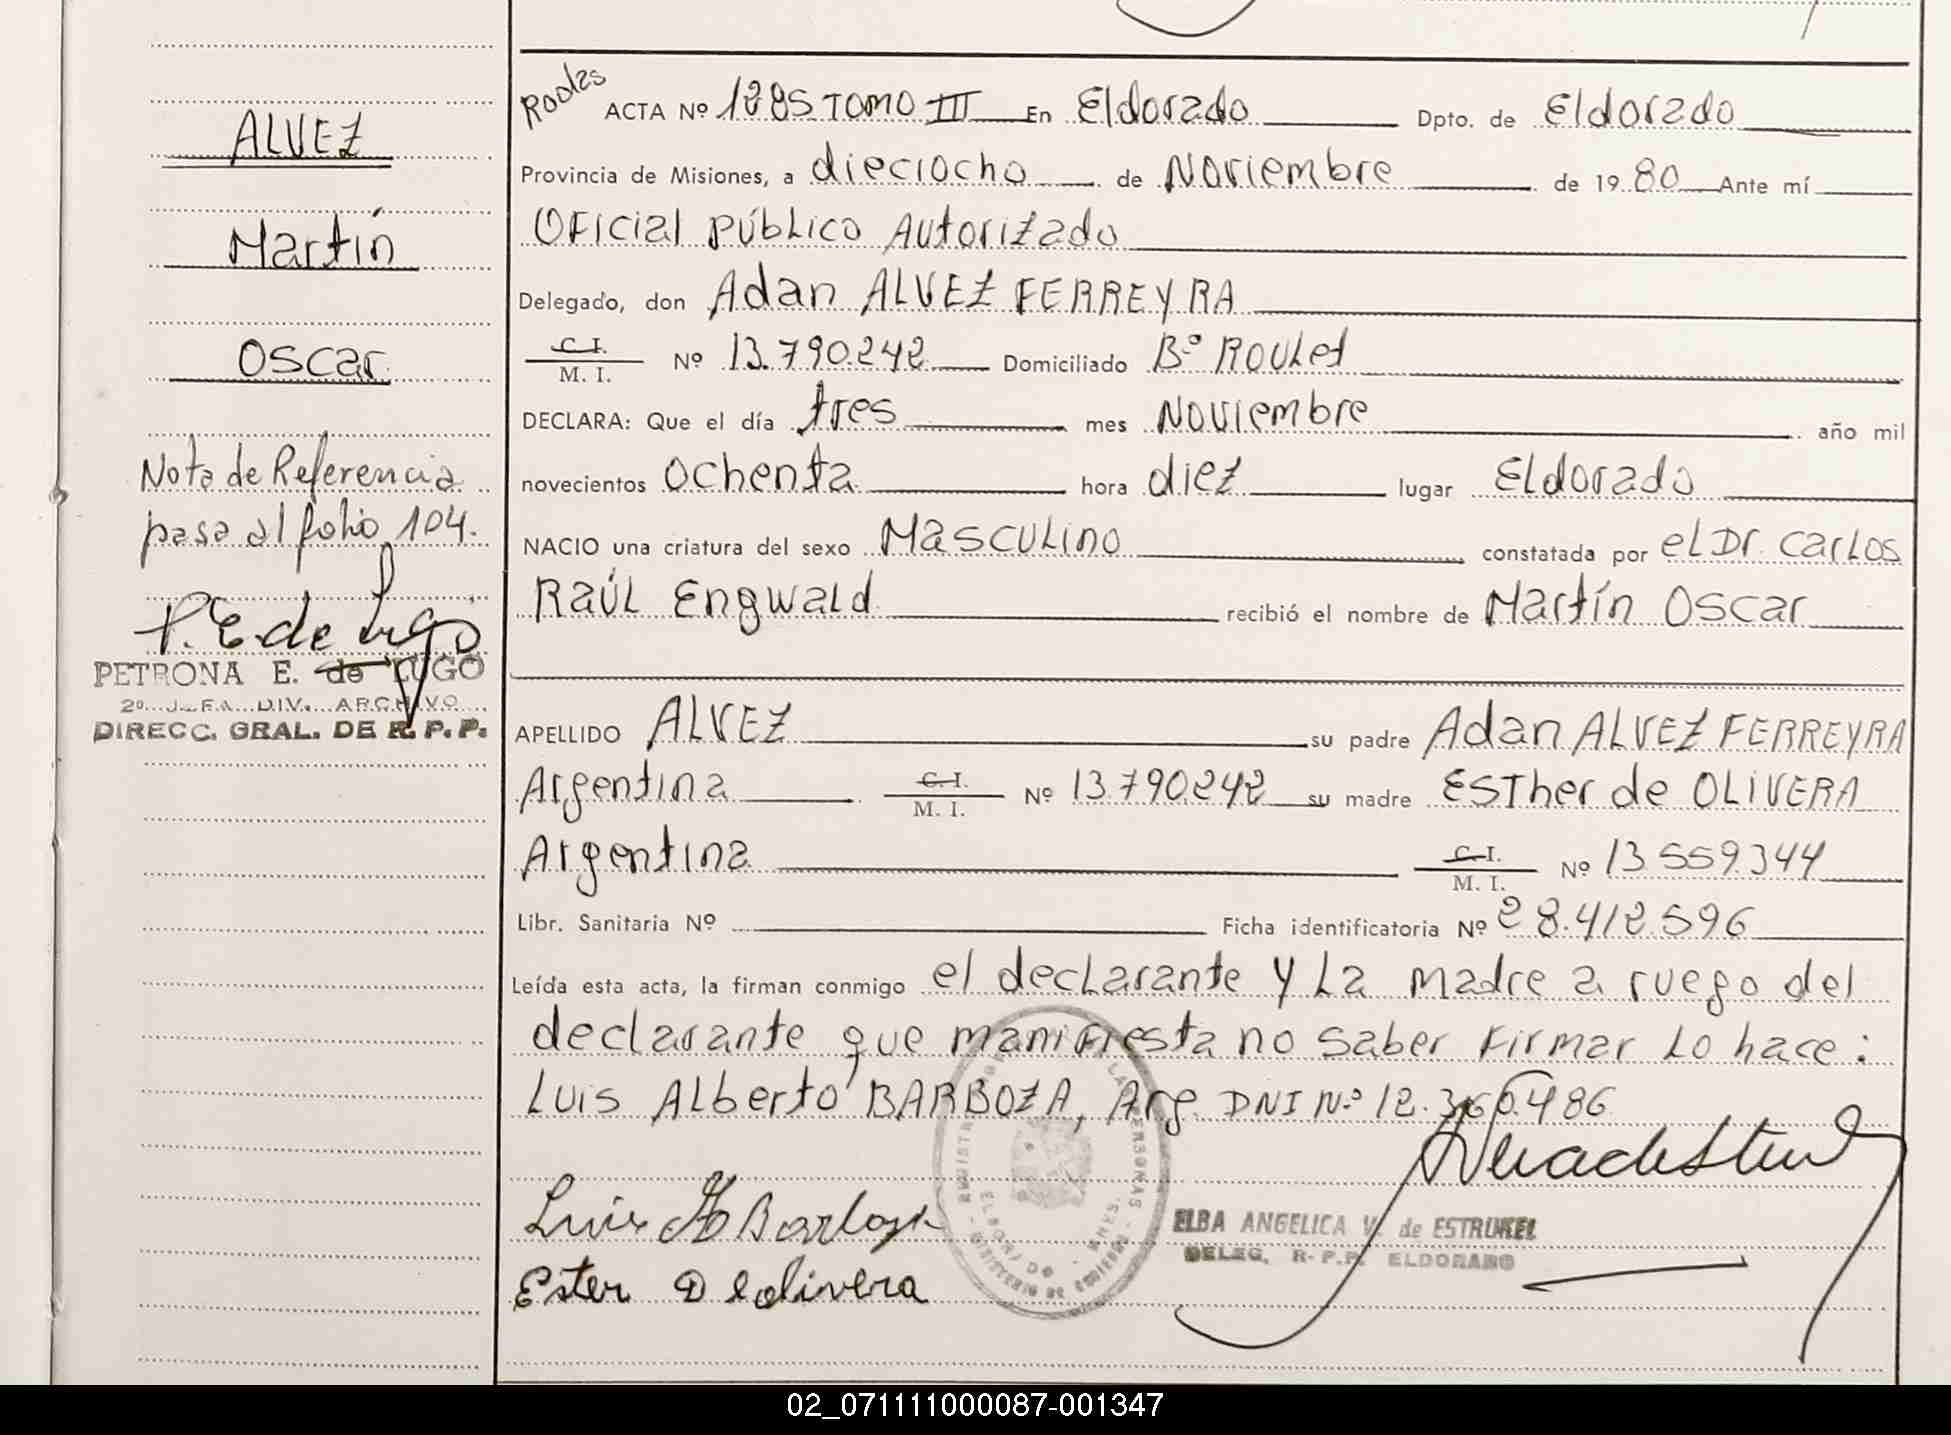 ALVEZ
Martín
Oscar
Nota de Referencia
pasa al folio 104.
P. E. de Lugo
PETRONA E. de LUGO
2º J. FA. DIV. ARCHIVO
DIRECC. GRAL. DE R. P. P.
ACTA Nº 1285 TOMO III En Eldorado Dpto. de Eldorado
Provincia de Misiones, a dieciocho de Noviembre de 19 80 Ante mí
Oficial Público Autorizado
Delegado, don Adan ALVEZ FERREYRA
C. I. / M. I. Nº 13.790.242 Domiciliado Bº ROULet
DECLARA: Que el día tres mes Noviembre año mil
novecientos ochenta hora diez lugar Eldorado
NACIO una criatura del sexo Masculino constatada por el Dr. Carlos
Raúl Engwald recibió el nombre de Martín Oscar
APELLIDO ALVEZ su padre Adan ALVEZ FERREYRA
Argentina C. I. / M. I. Nº 13.790.242 su madre ESTher de OLIVERA
Argentina C. I. / M. I. Nº 13.559.344
Libr. Sanitaria Nº Ficha identificatoria Nº 28.412.596
Leída esta acta, la firman conmigo el declarante y La madre a ruego del
declarante que manifiesta no saber firmar Lo hace:
Luis Alberto BARBOZA, Arg. DNI Nº 12.360.486
Luis A Barboza
Ester D eolivera
ELBA ANGELICA V. de ESTRUKEL
DELEG. R. P. P. ELDORADO
02_071111000087-001347